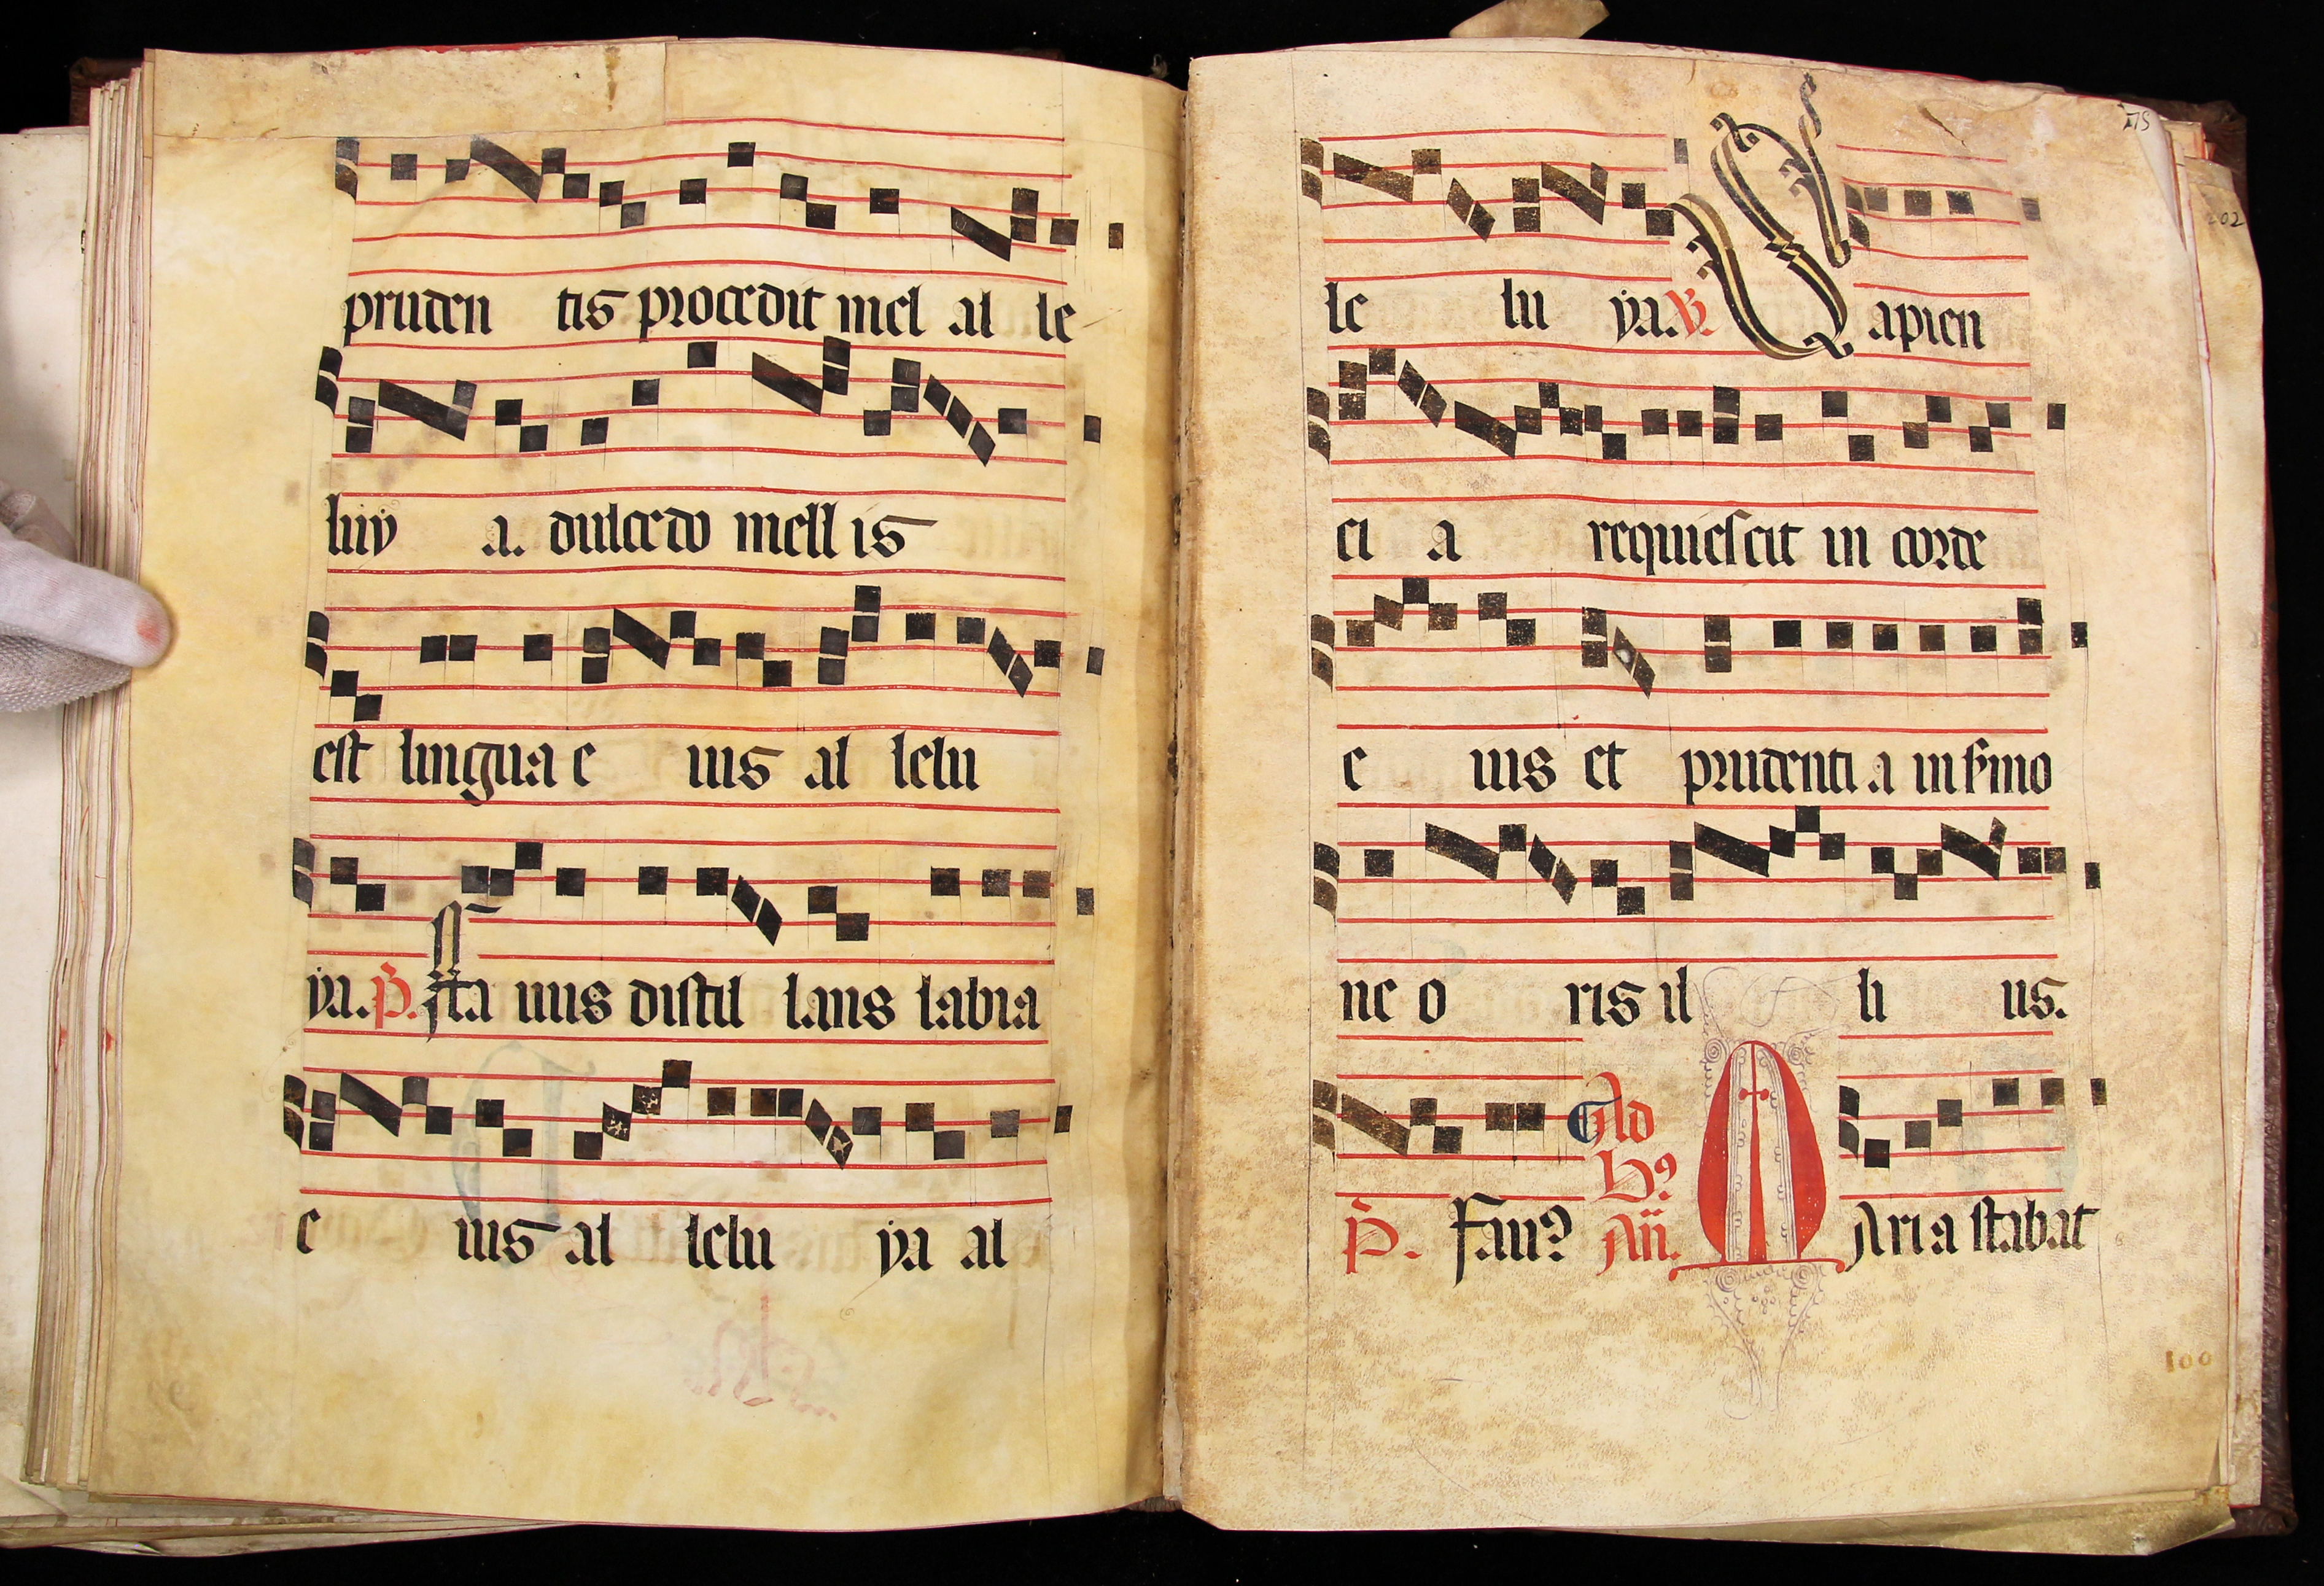 pruden tis procedit mel al le
luy a. dulcedo mell is
est lingua e ius al lelu
ya. p. ffa uus distil lans labia
e ius al lelu ya al
175
202
le lu ya. V. Sapien
ci a requiescit in corde
e ius et prudenti a in smo
ne o ris il li us.
Ald
B9
p. Fau9 An. MAria stabat
100